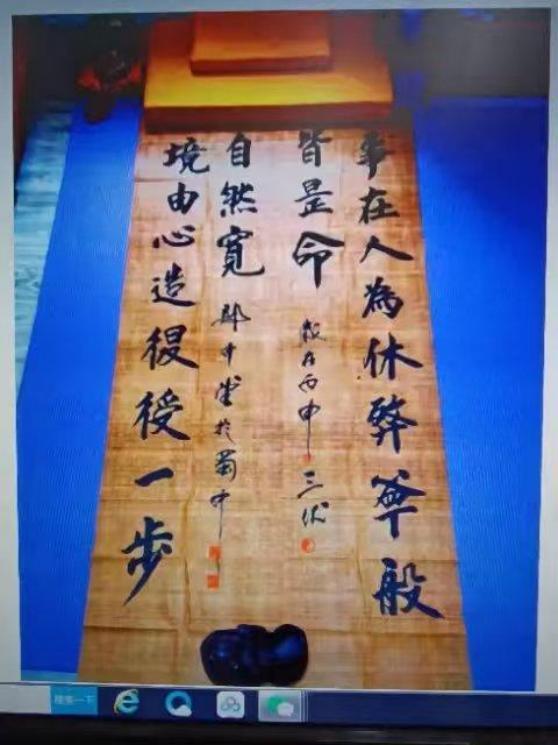 事在人為休般
皆是命
歲在丙申三伏
境由心造一步
自然寬
中堂於蜀中
搜索一下